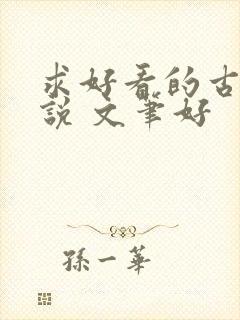 求好看的古
說 文筆好
孫一華